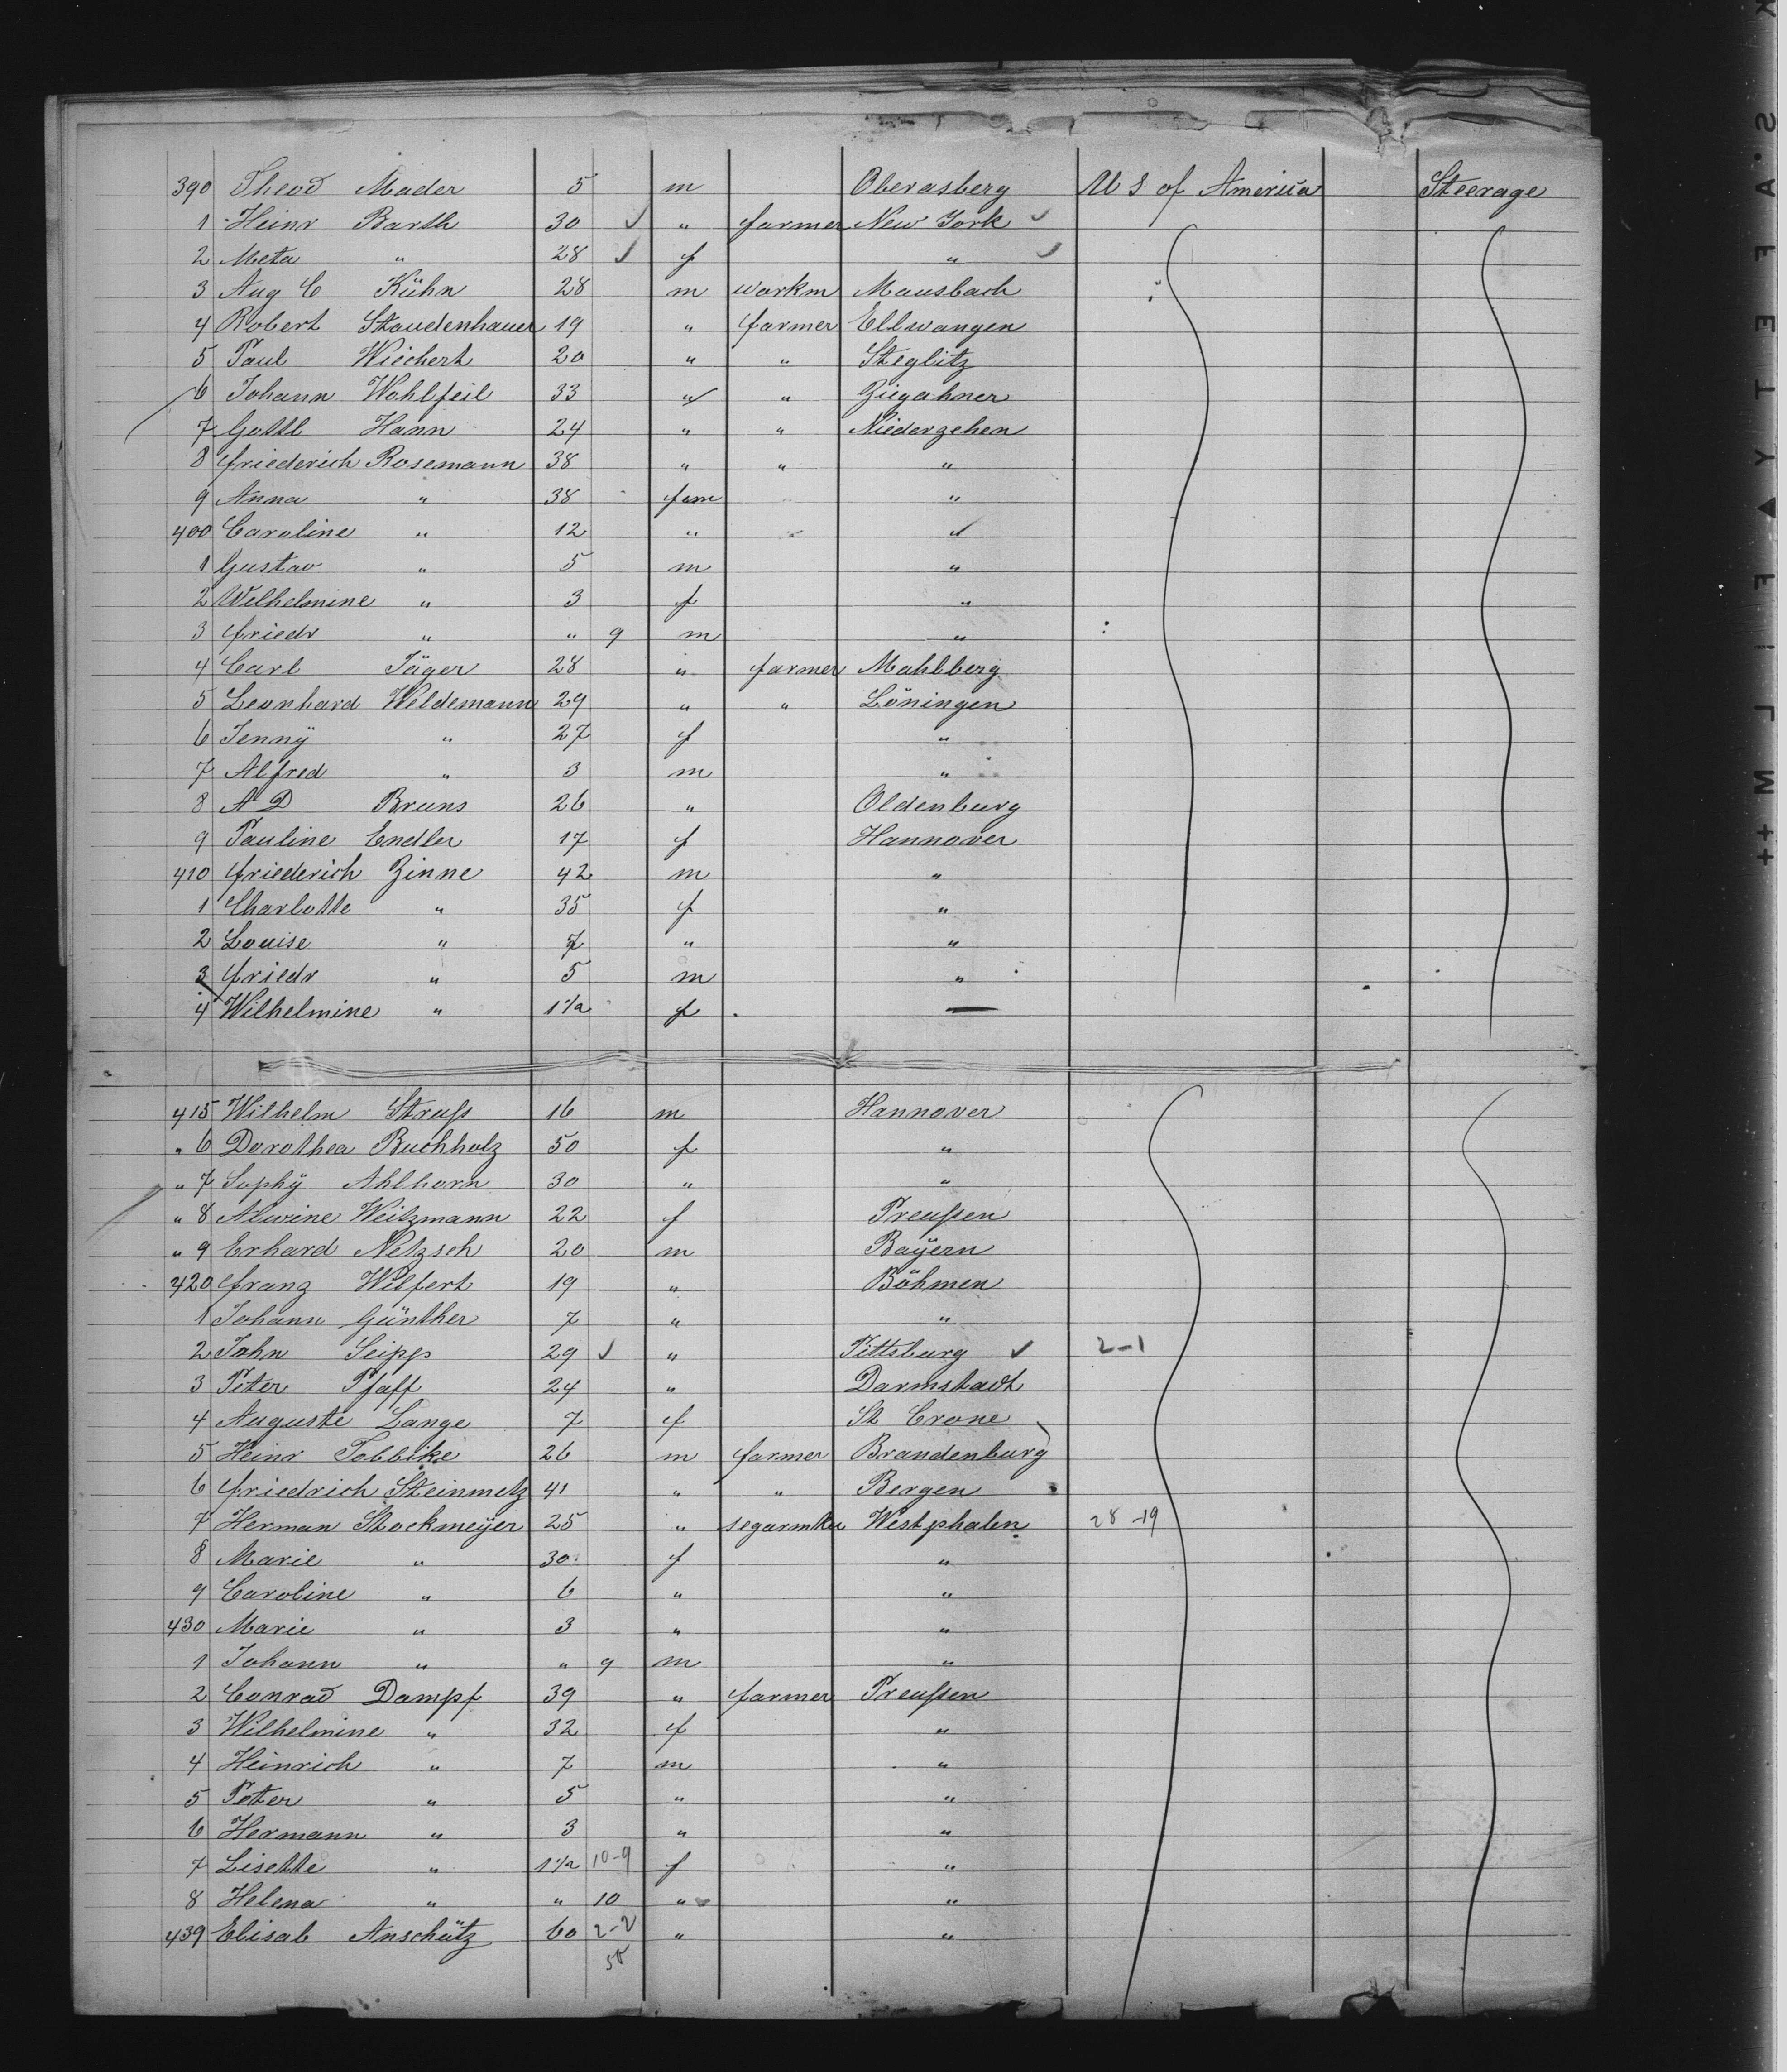 390 Theod Mader 5 m Oberasberg U S of America Steerage
1 Heinr Barth 30 ✓ " farmer New York ✓
2 Meta " 28 ✓ f " ✓
3 Aug C Kühn 28 m workm Mausbach "
4 Robert Staudenhauer 19 " farmer Ellwangen
5 Paul Wiechert 20 " " Steglitz
6 Johann Wohlfeil 33 " " Ziegahner
7 Gottl Hann 24 " " Niederzehen
8 Friederich Rosemann 38 " " "
9 Anna " 38 fem "
400 Caroline " 12 " "
1 Gustav " 5 m "
2 Wilhelmine " 3 f "
3 Friedr " " 9 m "
4 Carl Jäger 28 " farmer Mahlberg
5 Leonhard Wildemann 29 " " Löningen
6 Jenny " 27 f "
7 Alfred " 3 m "
8 A D Bruns 26 " Oldenburg
9 Pauline Endler 17 f Hannover
410 Friederich Zinne 42 m "
1 Charlotte " 35 f "
2 Louise " 7 " "
3 Friedr " 5 m "
4 Wilhelmine " 1 1/2 f —
415 Wilhelm Struß 16 m Hannover
" 6 Dorothea Buchholz 50 f "
" 7 Sophÿ Ahlborn 30 " "
" 8 Alwine Weitzmann 22 f Preußen
" 9 Erhard Netzsch 20 m Bayern
420 Franz Wilfert 19 " Böhmen
1 Johann Günther 7 " "
2 John Seipp 29 ✓ " Pittsburg ✓ 2-1
3 Peter Pfaff 24 " Darmstadt
4 Auguste Lange 7 f St Crone
5 Heinr Tobbike 26 m farmer Brandenburg
6 Friedrich Steinmetz 41 " " Bergen
7 Herman Stockmeÿer 25 " segarmkr Westphalen 28-19
8 Marie " 30 f "
9 Caroline " 6 " "
430 Marie " 3 " "
1 Johann " " 9 m "
2 Conrad Dampf 39 " farmer Preußen
3 Wilhelmine " 32 f "
4 Heinrich " 7 m "
5 Peter " 5 " "
6 Hermann " 3 " "
7 Lisette " 1 1/2 10-9 f "
8 Helena " " 10 " "
439 Elisab Anschütz 60 2-2 " "